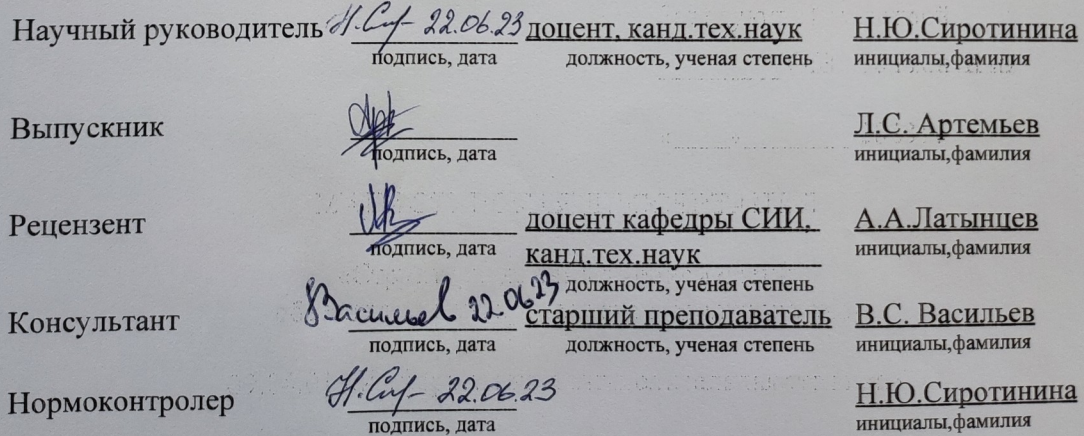 Научный руководитель Н.Сир- 22.06.23 доцент, канд.тех.наук Н.Ю.Сиротинина
подпись, дата должность, ученая степень инициалы,фамилия
Выпускник Л.С. Артемьев
подпись, дата инициалы,фамилия
Рецензент доцент кафедры СИИ, А.А.Латынцев
подпись, дата канд.тех.наук инициалы,фамилия
должность, ученая степень
Консультант Васильев 22.06.23 старший преподаватель В.С. Васильев
подпись, дата должность, ученая степень инициалы,фамилия
Нормоконтролер Н.Сир- 22.06.23 Н.Ю.Сиротинина
подпись, дата инициалы,фамилия